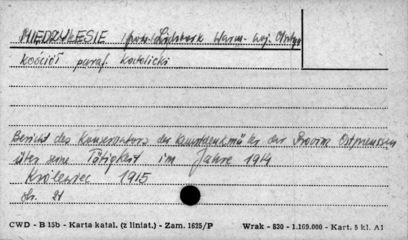 MIĘDZYLESIE /pow. Lidzbark Warm. woj. Olsztyn
Kościół paraf. katolicki
Bericht des Konservators der Kunstdenkmäler der Provinz Ostpreussen
über seine Tätigkeit im Jahre 1914
Królewiec 1915
Str. 21
CWD - B 15b - Karta katal. (z liniat.) - Zam. 1625/P Wrak - 830 - 1.169.000 - Kart. 5 kl. A1